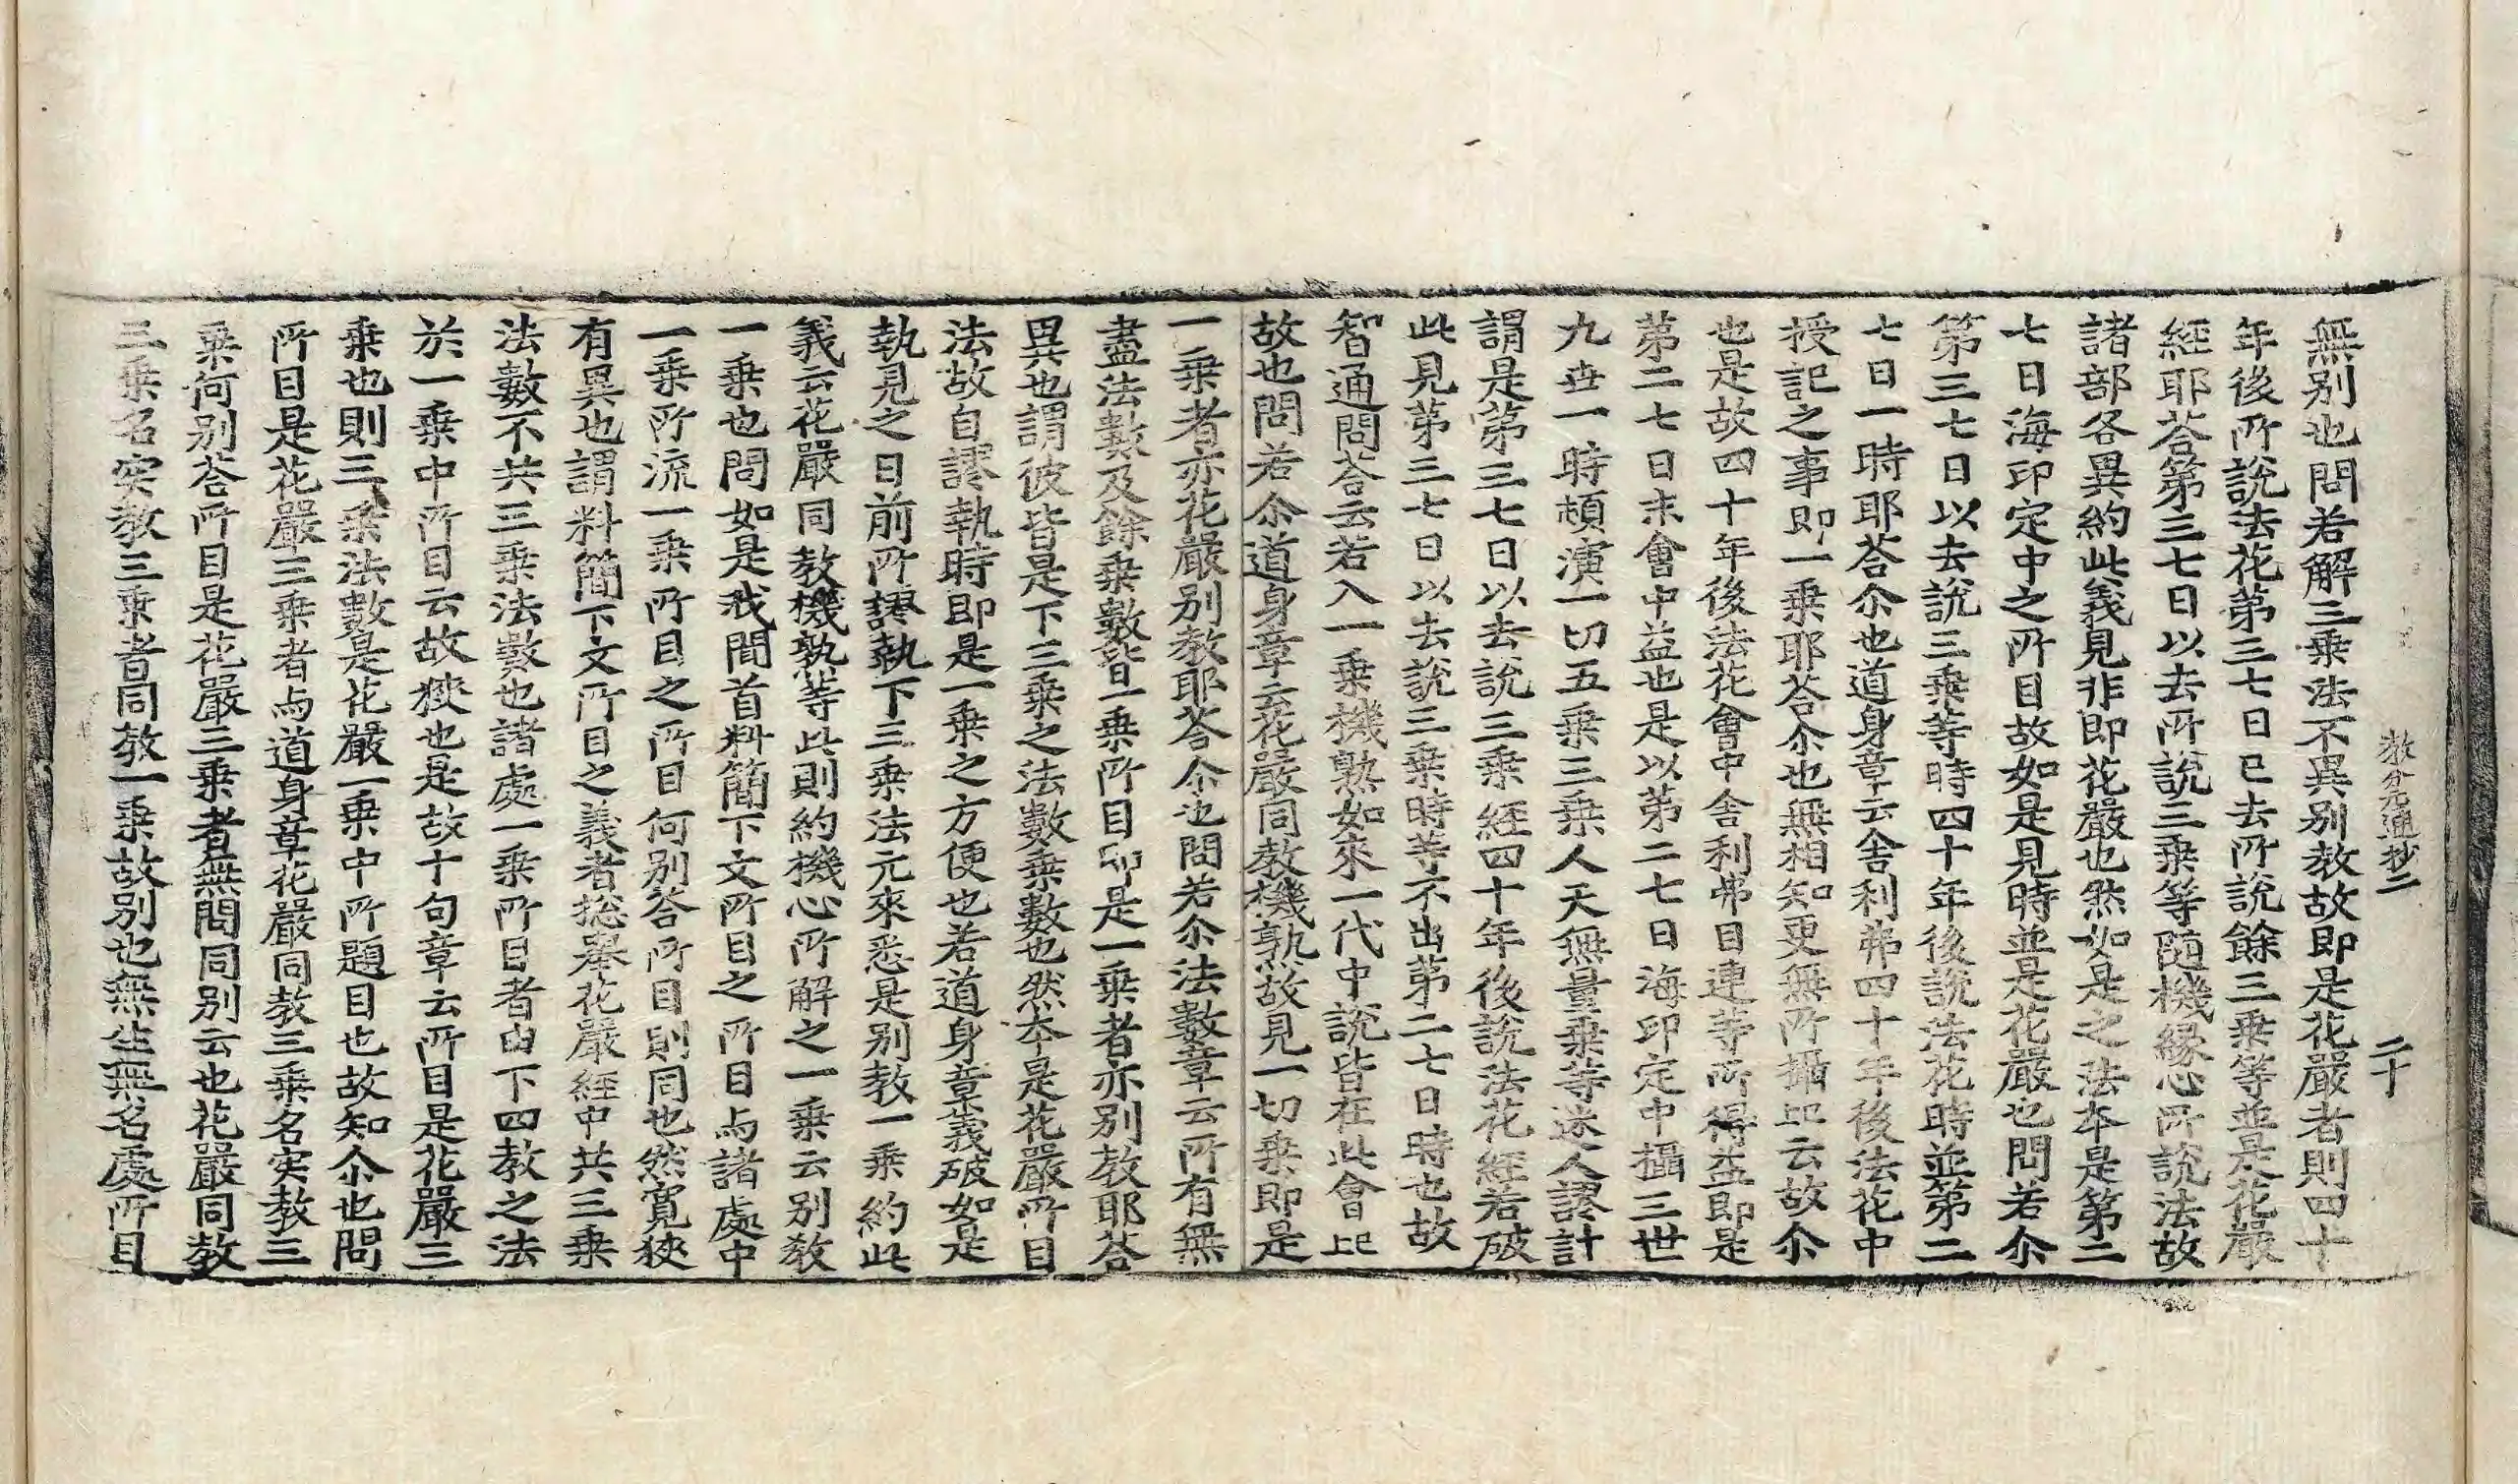 教分元通抄二　二十
無別也問若解三乘法不異別教故即是花嚴者則四十
年後所說法花第三七日已去所說餘三乘等並是花嚴
經耶荅第三七日以去所說三乘等随機緣心所說法故
諸部各異約此義見非即花嚴也然如是之法本是第二
七日海印定中之所目故如是見時並是花嚴也問若尒
第三七日以去說三乘等時四十年後說法花時並第二
七日一時耶荅尒也道身章云舎利弗四十年後法花中
授記之事即一乘耶荅尒也無相知更無所攝㠯云故尒
也是故四十年後法花會中舎利弗目連等所得益即是
第二七日末會中益也是以第二七日海印定中攝三世
九世一時頓演一切五乘三乘人天無量乘等迷人謬計
謂是第三七日以去說三乘經四十年後說法花經若破
此見第三七日以去說三乘時等不出第二七日時也故
智通問荅云若入一乘機熟如來一代中說皆在此會㠯
故也問若尒道身章云花嚴同教機熟故見一切乘即是
一乘者亦花嚴別教耶荅尒也問若尒法數章云所有無
盡法數及餘乘數皆一乘所目即是一乘者亦別教耶荅
異也謂彼皆是下三乘之法數乘數也然本是花嚴所目
法故自謬執時即是一乘之方便也若道身章義破如是
執見之日前所謬執下三乘法元來悉是別教一乘約此
義云花嚴同教機熟等此則約機心所解之一乘云別教
一乘也問如是我聞首料簡下文所目之所目与諸處中
一乘所流一乘所目之所目何別荅所目則同也然寬狹
有異也謂料簡下文所目之義者惣舉花嚴經中共三乘
法數不共三乘法數也諸處一乘所目者由下四教之法
於一乘中所目云故狹也是故十句章云所目是花嚴三
乘也則三乘法數是花嚴一乘中所題目也故知尒也問
所目是花嚴三乘者与道身章花嚴同教三乘名実教三
乘何別荅所目是花嚴三乘者無問同別云也花嚴同教
三乘名実教三乘者同教一乘故別也無生無名處所目